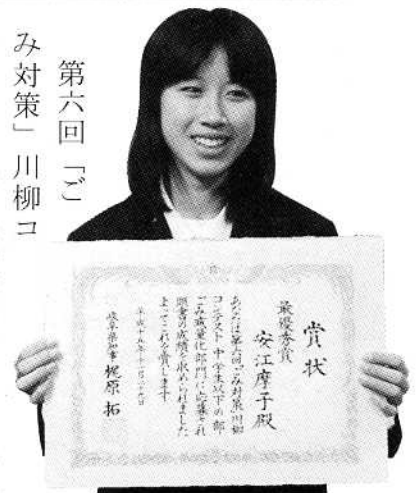 第六回「ご
み対策」川柳コ
賞状
最優秀賞
安江摩子殿
あなたは第六回ごみ対策川柳
コンテスト中学生以下の部
ごみ減量化部門に応募され
頭書の成績を収められました
よってこれを賞します
平成十五年十一月二十九日
岐阜県知事 梶原 拓